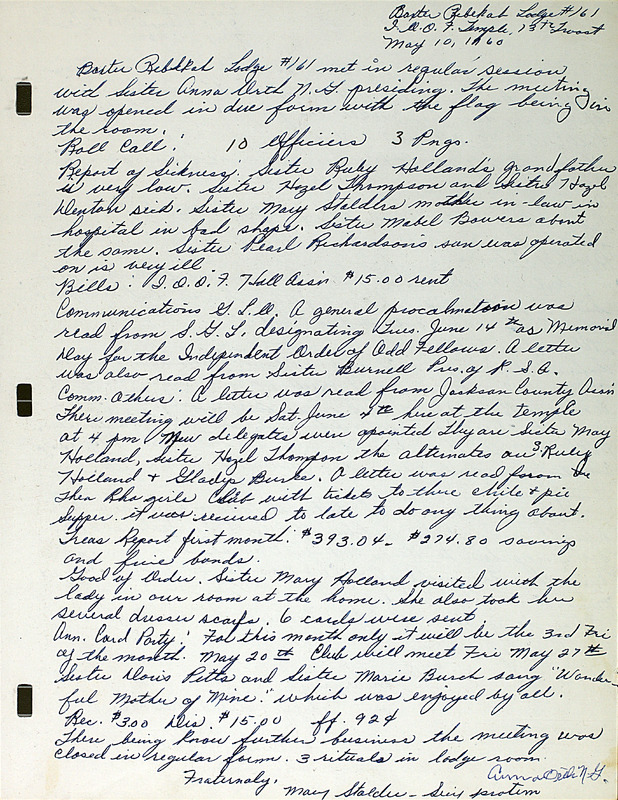 Baxter Rebekah Lodge #161
I.O.O.F. Temple, 13th & Troost
May 10, 1960
Baxter Rebekah Lodge #161 met in regular session
with Sister Anna Orth N.G. presiding. The meeting
was opened in due form with the flag being in
the room.
Roll Call: 10 Officiers 3 Pngs.
Report of Sickness: Sister Ruby Hollands grandfather
is very low. Sister Hazel Thompson and Sister Hazel
Denton sick. Sister Mary Stalders mother in-law in
hospital in bad shape. Sister Mabel Bowers about
the same. Sister Pearl Richardsons son was operated
on is very ill.
Bills: I.O.O.F. Hall Assn. $15.00 rent
Communications G.L.O. A general procalmation was
read from S.G.L. designating Tues. June 14th as Memorial
Day for the Independent Order of Odd Fellows. A letter
was also read from Sister Burnell Pres. of R.S.A.
Comm. Others: A letter was read from Jackson County Ass'n
There meeting will be Sat. June here at the Temple
at 4 pm New delegates were apointed They are Sister May
Holland, Sister Hazel Thompson the alternates are S. Ruby
Holland & Gladys Burke. A letter was read from the
Thea Rho girls Club with tickets to there chile & pie
Supper. it was recieved to late to do any thing about.
Treas Report first month: $393.04 - $274.80 savings
and five bonds.
Good of Order. Sister Mary Holland visited with the
lady in our room at the home. She also took her
several dresser scarfs. 6 cards were sent
Ann. Card Party: For this month only it will be the 3rd Fri
of the month. May 20th Club will meet Fri May 27th
Sister Doris Pitts and Sister Marie Burch sang "Wonder-
ful Mother of Mine." which was enjoyed by all.
Rec. $3.00 Dis. $15.00 ff. 92¢
There being know further business the meeting was
closed in regular form. 3 rituals in lodge room.
Anna Orth N.G.
Fraternaly,
Mary Stalder - Secy protem